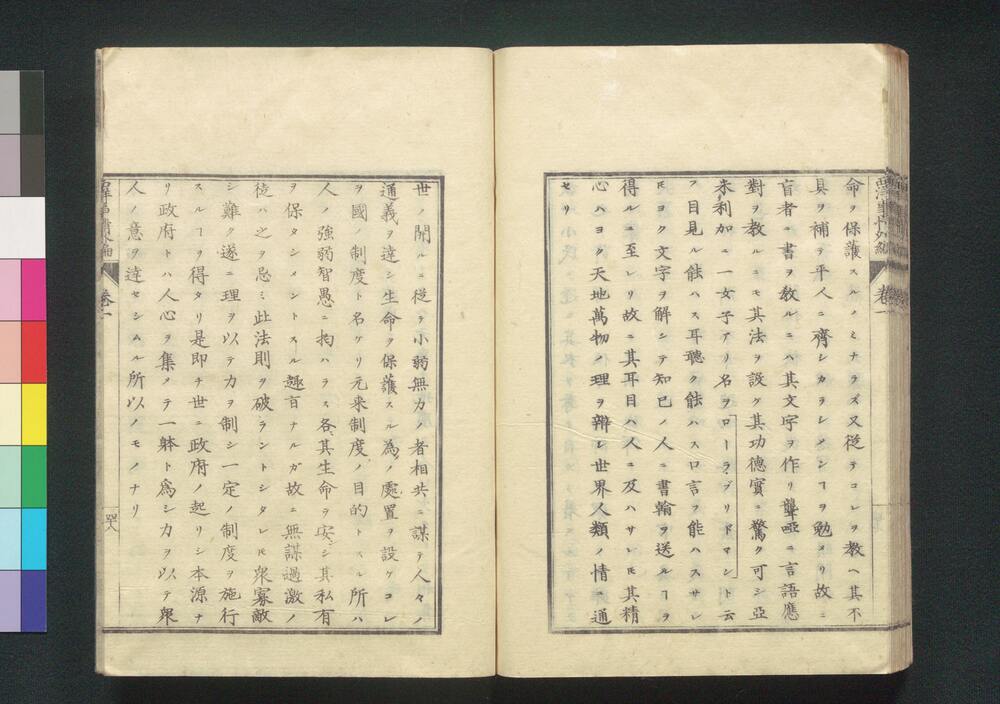 命ヲ保護スルノミナラズ又從テコレヲ教ヘ其不
具ヲ補テ平人ニ齊シカラシメンヿヲ勉メリ故ニ
盲者ニ書ヲ教ルニハ其文字ヲ作リ聾啞ニ言語應
對ヲ教ルニモ其法ヲ設ク其功德實ニ驚ク可シ亞
米利加ニ一女子アリ名ヲローラ、ブリドマント云
フ目見ル能ハス耳聽ク能ハス口言フ能ハスサレ
𪜈ヨク文字ヲ解シテ知已ノ人ニ書翰ヲ送ルヿヲ
得ルニ至レリ故ニ其耳目ハ人ニ及ハサレ𪜈其精
心ハヨク天地萬物ノ理ヲ辨シ世界人類ノ情ニ通
セリ
西洋事情外編
卷一
世ノ開ルニ從テ小弱無力ノ者相共ニ謀テ人々ノ
通義ヲ達シ生命ヲ保護スル為メノ處置ヲ設ケコレ
ヲ國ノ制度ト名ケリ元來制度ノ目的トスル所ハ
人ノ強弱智愚ニ拘ハラス各其生命ヲ安シ其私有
ヲ保タシメントスル趣旨ナルガ故ニ無謀過激ノ
徒ハ之ヲ忌ミ此法則ヲ破ラントシタレ𪜈衆寡敵
シ難ク遂ニ理ヲ以テ力ヲ制シ一定ノ制度ヲ施行
スルヿヲ得タリ是即チ世ニ政府ノ起リシ本源ナ
リ政府トハ人心ヲ集メテ一躰ト為シ力ヲ以テ衆
人ノ意ヲ達セシムル所以ノモノナリ
卷一